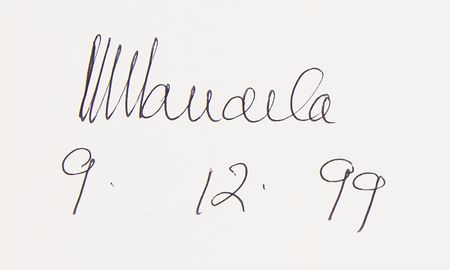 NMandela
9. 12. 99